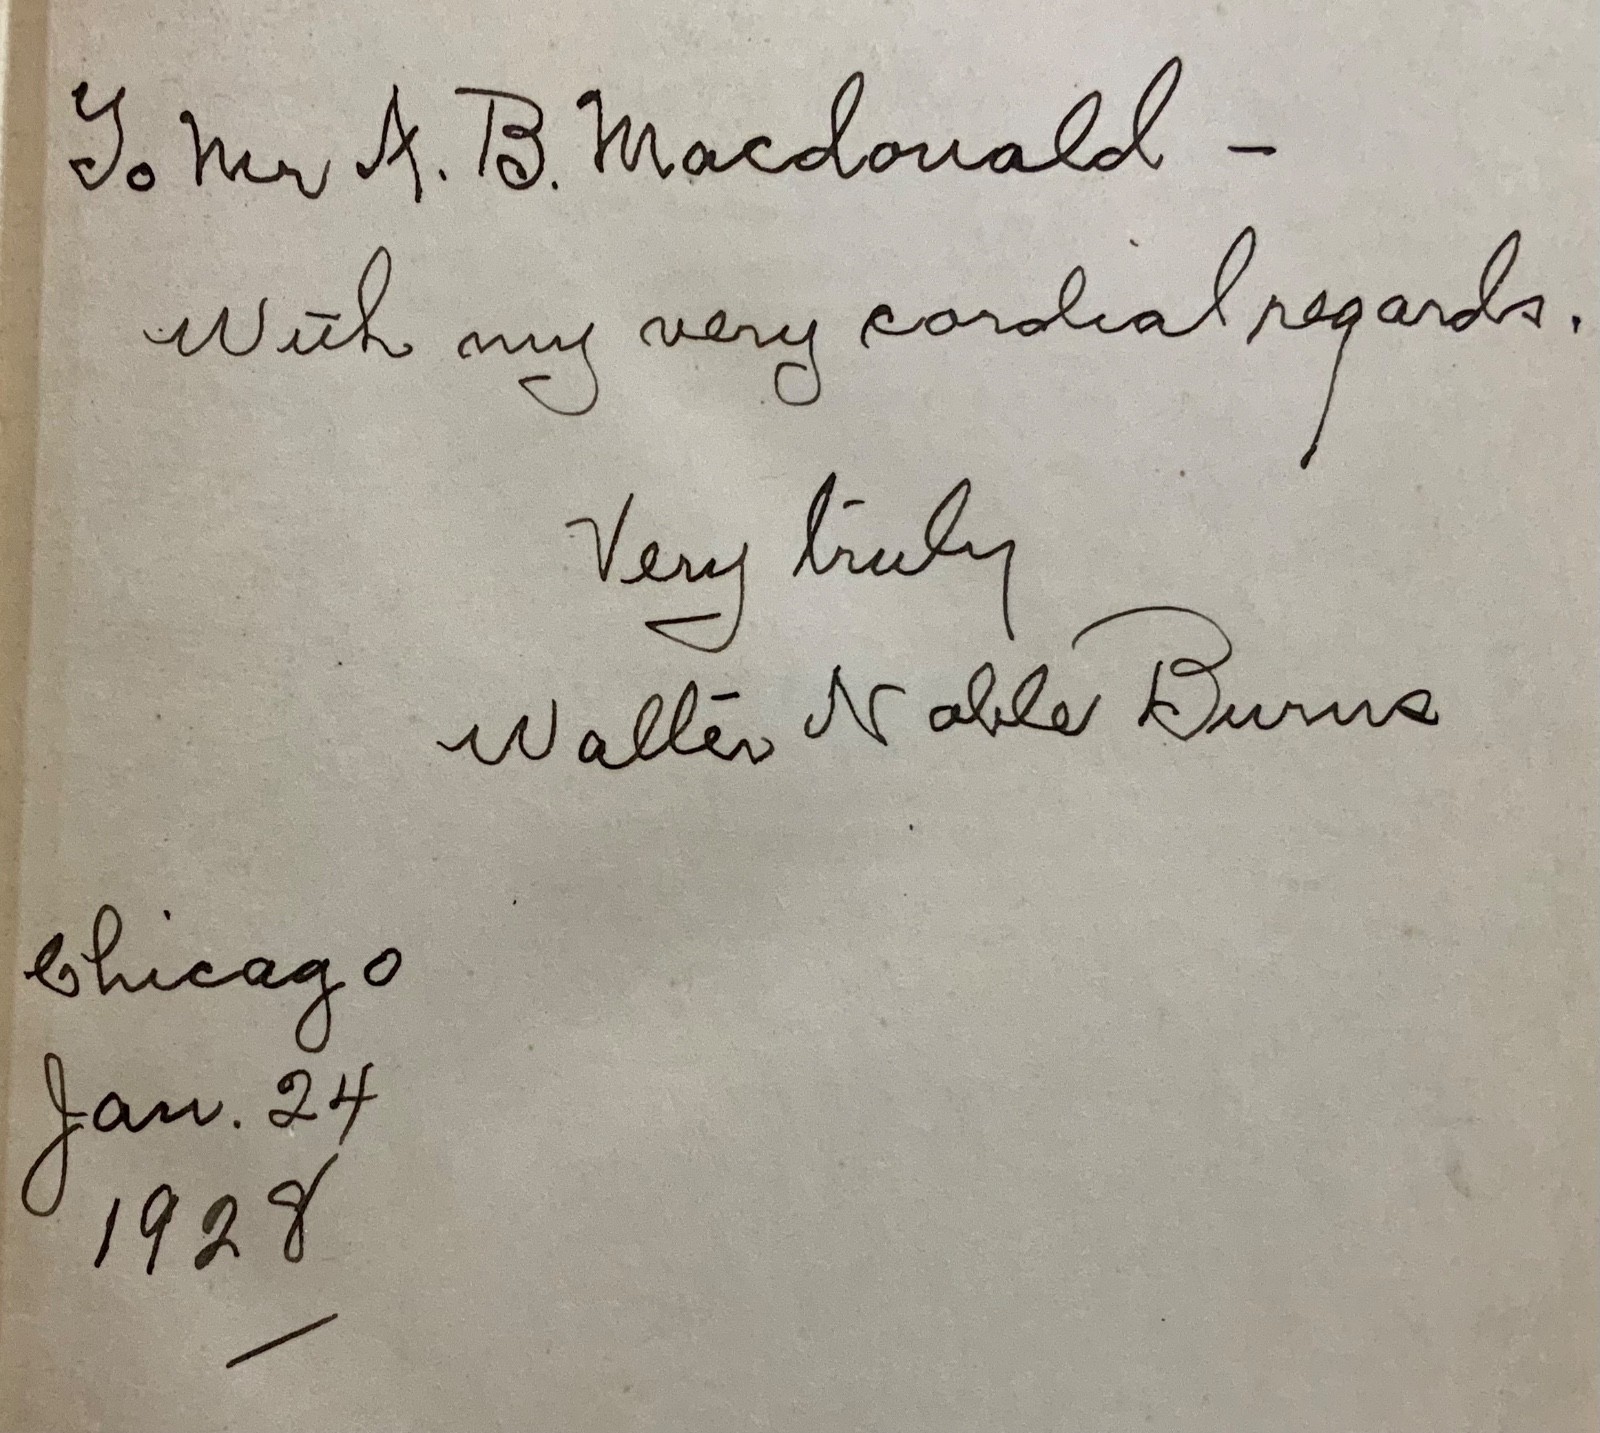 To Mr A. B. Macdonald –
With my very cordial regards.
Very truly
Walter Noble Burns
Chicago
Jan. 24
1928